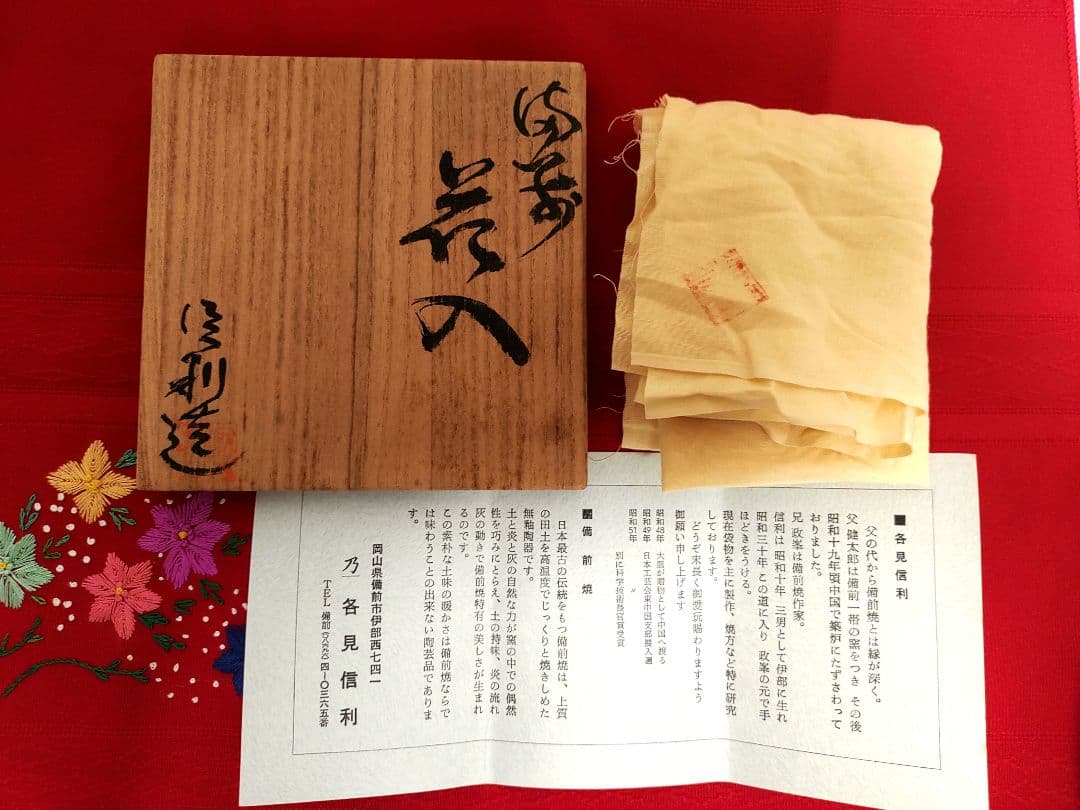 備前
花入
信利造
■各見信利
父の代から備前焼とは縁が深く。
父 健太郎は備前一帯の窯をつき その後
昭和十九年頃中国で築炉にたずさわって
おりました。
兄 政峯は備前焼作家。
信利は 昭和十年 三男として伊部に生れ
昭和三十年 この道に入り 政峯の元で手
ほどきをうける。
現在袋物を主に製作、焼方など特に研究
しております。
どうぞ末長く御愛玩賜わりますよう
御願い申し上げます
昭和48年 大皿が贈物として中国へ渡る
昭和49年 日本工芸会東中国支部展入選
昭和51年 〃
別に科学技術長官賞受賞
■備前焼
日本最古の伝統をもつ備前焼は、上質
の田土を高温度でじっくりと焼きしめた
無釉陶器です。
土と炎と灰の自然な力が窯の中での偶然
性を巧みにとらえ、土の持味、炎の流れ
灰の動きで備前焼特有の美しさが生まれ
るのです。
この素朴な土味の暖かさは備前焼ならで
は味わうことの出来ない陶芸品でありま
す。
岡山県備前市伊部西七四一
乃 各見信利
TEL 備前(〇八六九六)四-〇三六五番